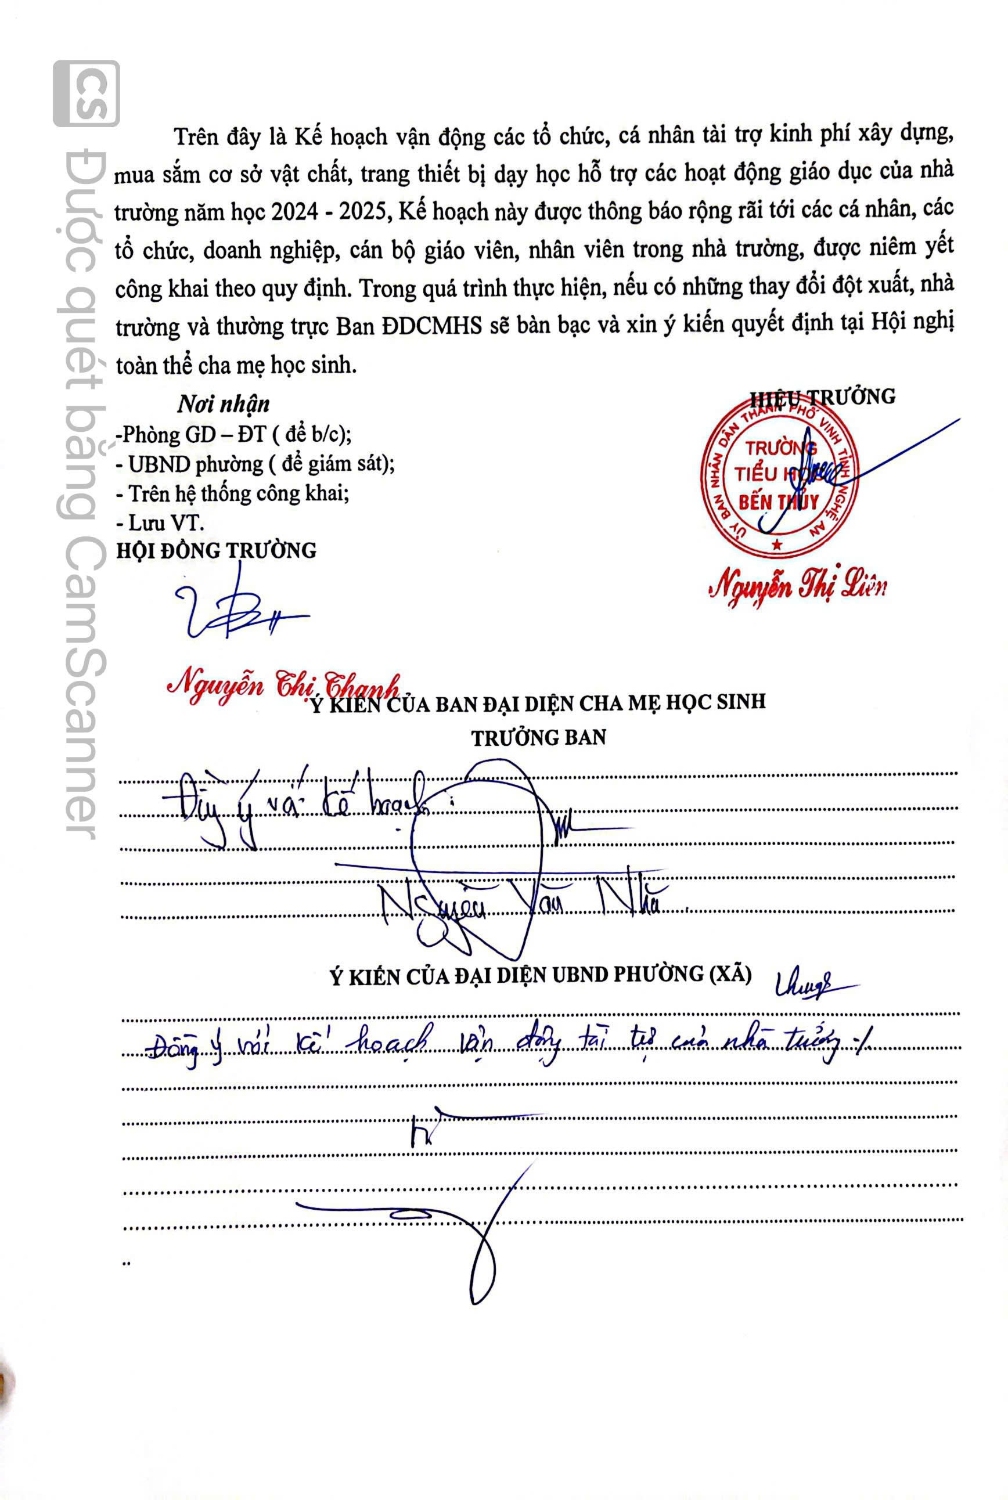 Trên đây là Kế hoạch vận động các tổ chức, cá nhân tài trợ kinh phí xây dựng,
mua sắm cơ sở vật chất, trang thiết bị dạy học hỗ trợ các hoạt động giáo dục của nhà
trường năm học 2024 - 2025, Kế hoạch này được thông báo rộng rãi tới các cá nhân, các
tổ chức, doanh nghiệp, cán bộ giáo viên, nhân viên trong nhà trường, được niêm yết
công khai theo quy định. Trong quá trình thực hiện, nếu có những thay đổi đột xuất, nhà
trường và thường trực Ban ĐDCMHS sẽ bàn bạc và xin ý kiến quyết định tại Hội nghị
toàn thể cha mẹ học sinh.
Nơi nhận
-Phòng GD – ĐT ( để b/c);
- UBND phường ( để giám sát);
- Trên hệ thống công khai;
- Lưu VT.
HIỆU TRƯỞNG
ỦY BAN NHÂN DÂN THÀNH PHỐ VINH TỈNH NGHỆ AN
TRƯỜNG
TIỂU HỌC
BẾN THỦY
Nguyễn Thị Liên
HỘI ĐỒNG TRƯỜNG
Nguyễn Thị Thanh
Ý KIẾN CỦA BAN ĐẠI DIỆN CHA MẸ HỌC SINH
TRƯỞNG BAN
ý với kế hoạch
Nguyễn Văn Nhã
Ý KIẾN CỦA ĐẠI DIỆN UBND PHƯỜNG (XÃ)
Đồng ý với kế hoạch vận động tài trợ của nhà trường ./.
CS Được quét bằng CamScanner